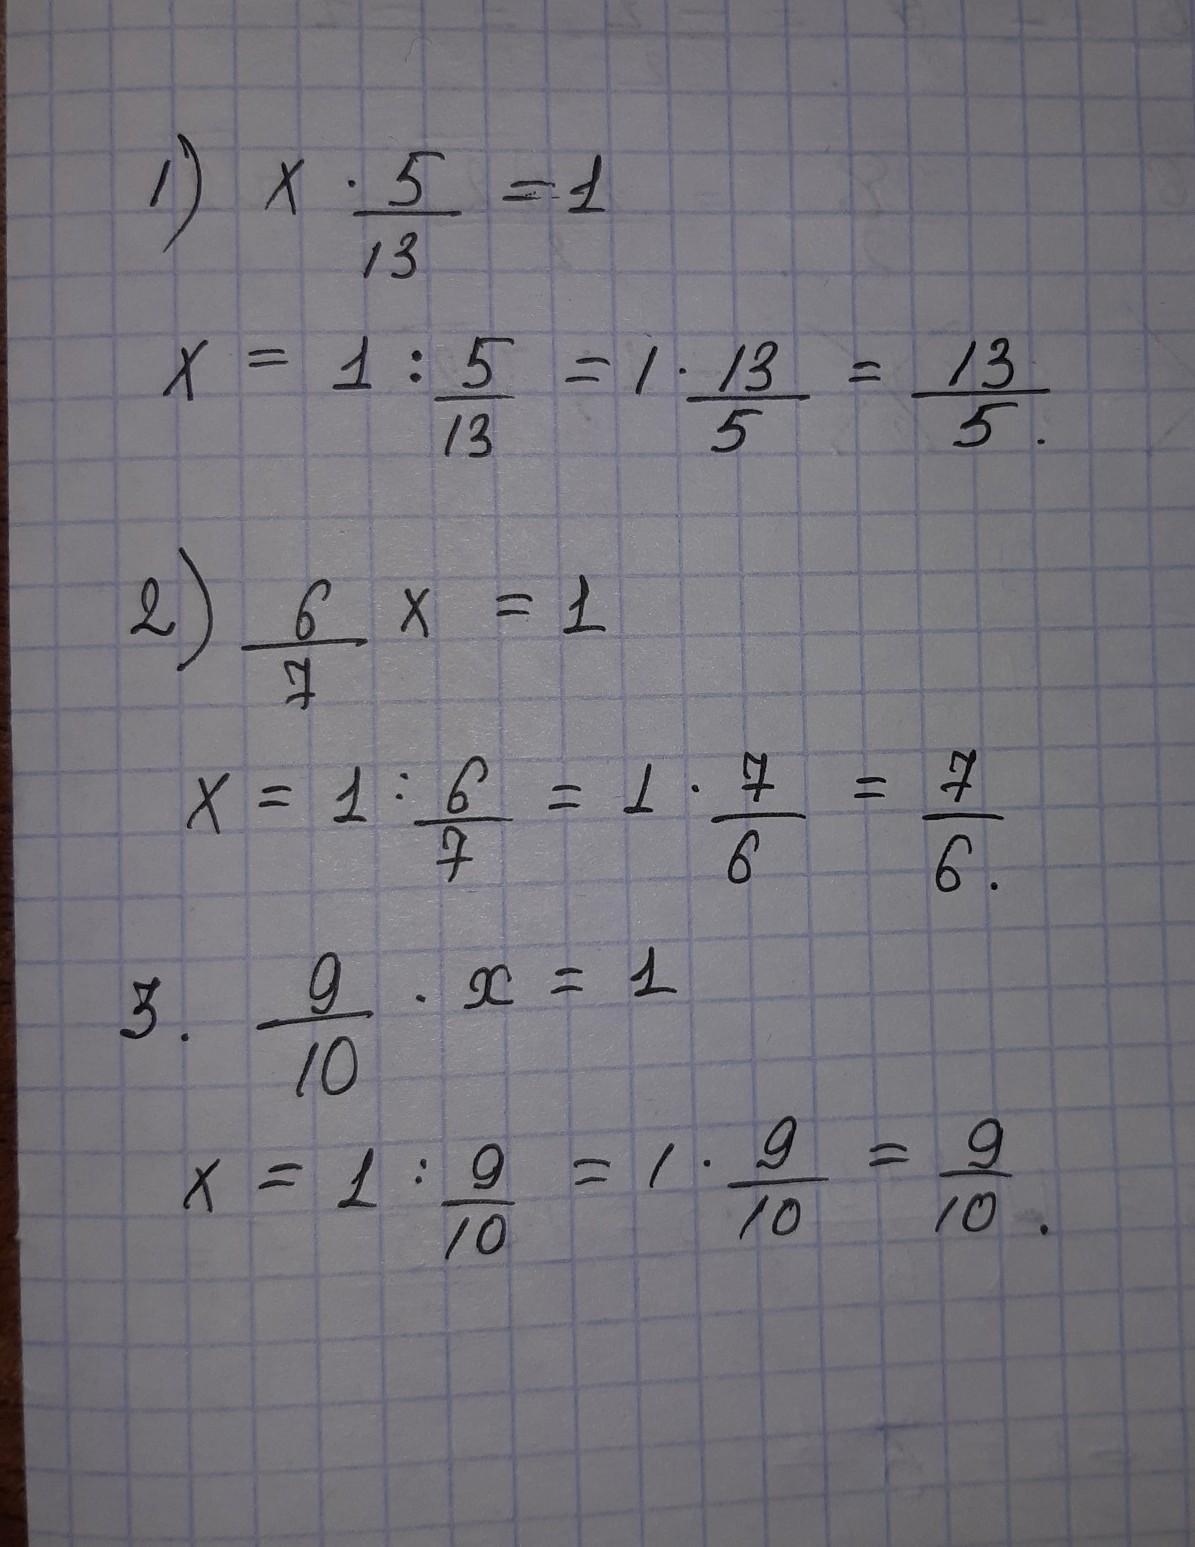 1) x · 5/13 = 1
x = 1 : 5/13 = 1 · 13/5 = 13/5.
2) 6/7 x = 1
x = 1 : 6/7 = 1 · 7/6 = 7/6.
3. 9/10 · x = 1
x = 1 : 9/10 = 1 · 9/10 = 9/10.